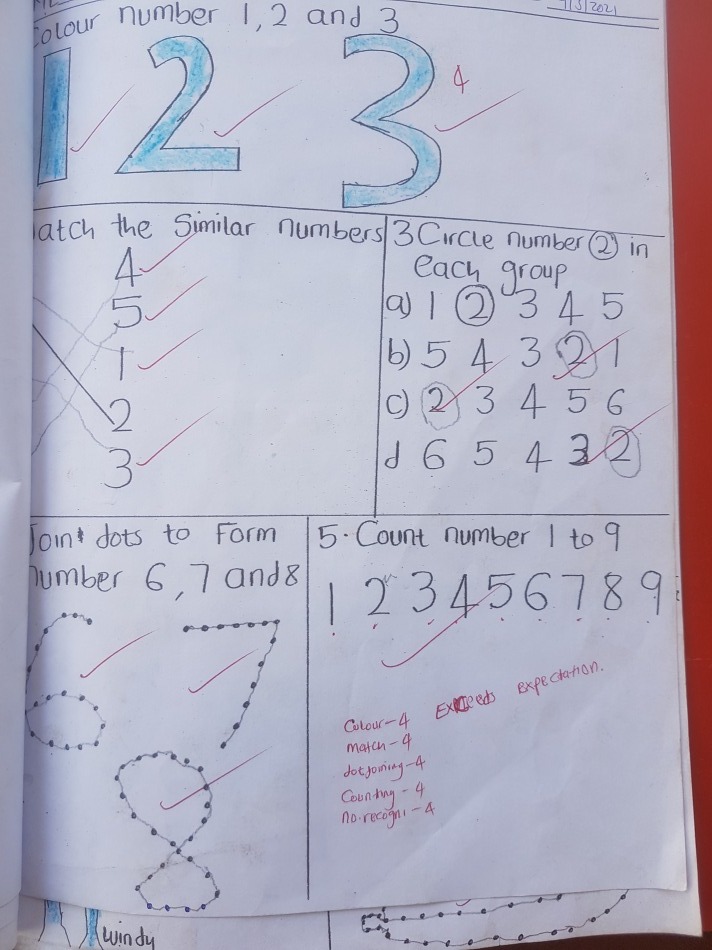 7/5/2021
Colour number 1, 2 and 3
1 2 3
4
atch the Similar numbers
4
5
1
2
3
3 Circle number 2 in
each group
a) 1 2 3 4 5
b) 5 4 3 2 1
c) 2 3 4 5 6
d 6 5 4 3 2
Join dots to Form
number 6, 7 and 8
6 7
8
5. Count number 1 to 9
1 2 3 4 5 6 7 8 9
Exceeds expectation.
Colour-4
match-4
dotjoining-4
Counting-4
no.recogni-4
windy